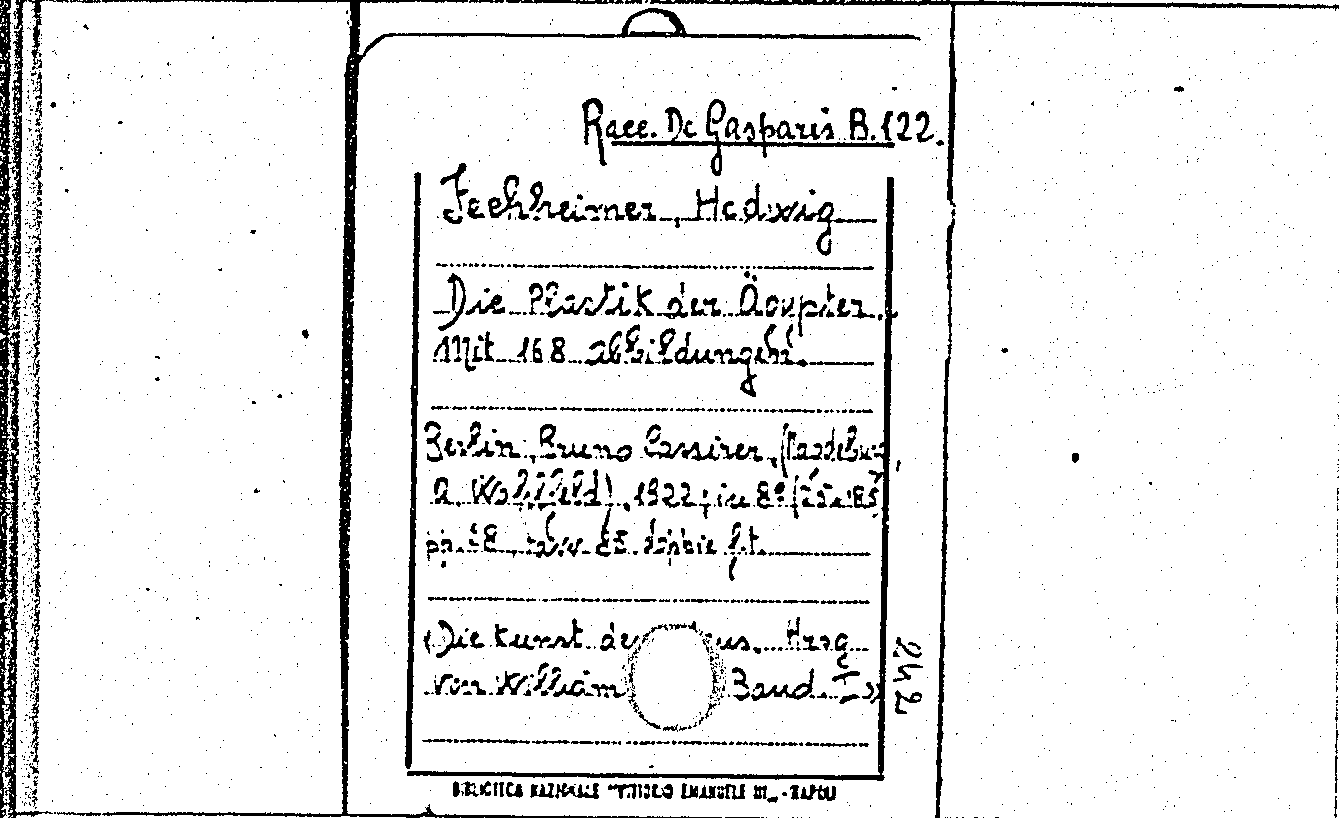 Racc. De Gasparis B. 122.
Fechheimer, Hedwig
Die Plastik der Ägypter.
Mit 168 abbildungen.
Berlin, Bruno Cassirer, (Magdeburg,
A. Wohlfeld), 1922; in 8° (25x185)
pp. 58, tav. doppie f.t.
(Die Kunst de us. Hrsg
von William Band I »
242
BIBLIOTECA NAZIONALE "VITTORIO EMANUELE III„ - NAPOLI